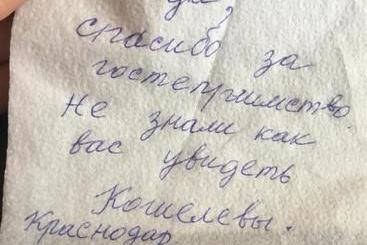 спасибо за
гостеприимство.
Не знали как
вас увидеть
Кошелевы.
Краснодар